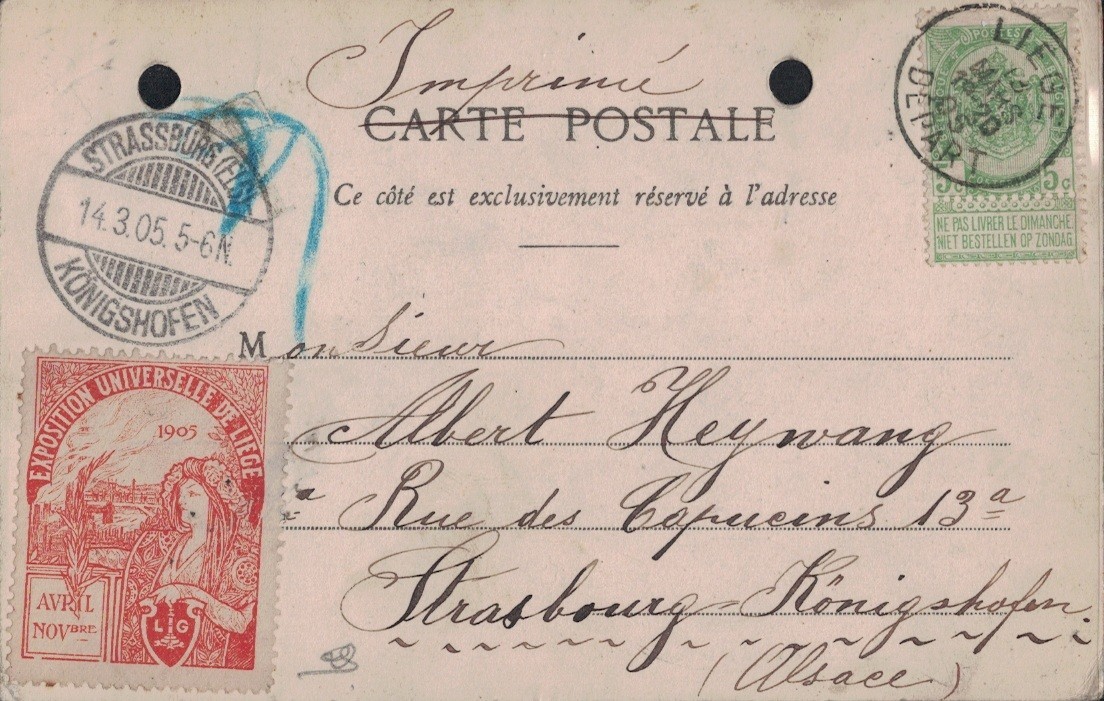 Imprimé
CARTE POSTALE
Ce côté est exclusivement réservé à l'adresse
LIÉGE
DEPART
POSTES
5c 5c
NE PAS LIVRER LE DIMANCHE
NIET BESTELLEN OP ZONDAG
STRASSBURG (ELS)
14.3.05. 5-6N.
KÖNIGSHOFEN
Monsieur
Albert Heywang
Rue des Capucins 13a
Strasbourg-Königshofen
(Alsace)
EXPOSITION UNIVERSELLE DE LIEGE
1905
AVRIL
NOVBRE
LG